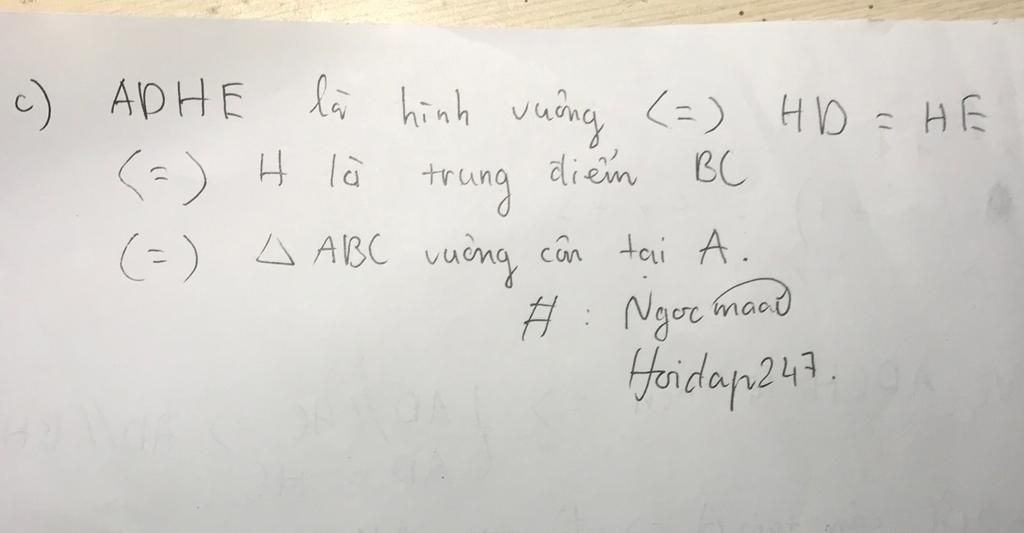 c) ADHE là hình vuông (=) HD = HE
(=) H là trung điểm BC
(=) △ ABC vuông cân tại A.
# : Ngocmaad
Hoidap247.